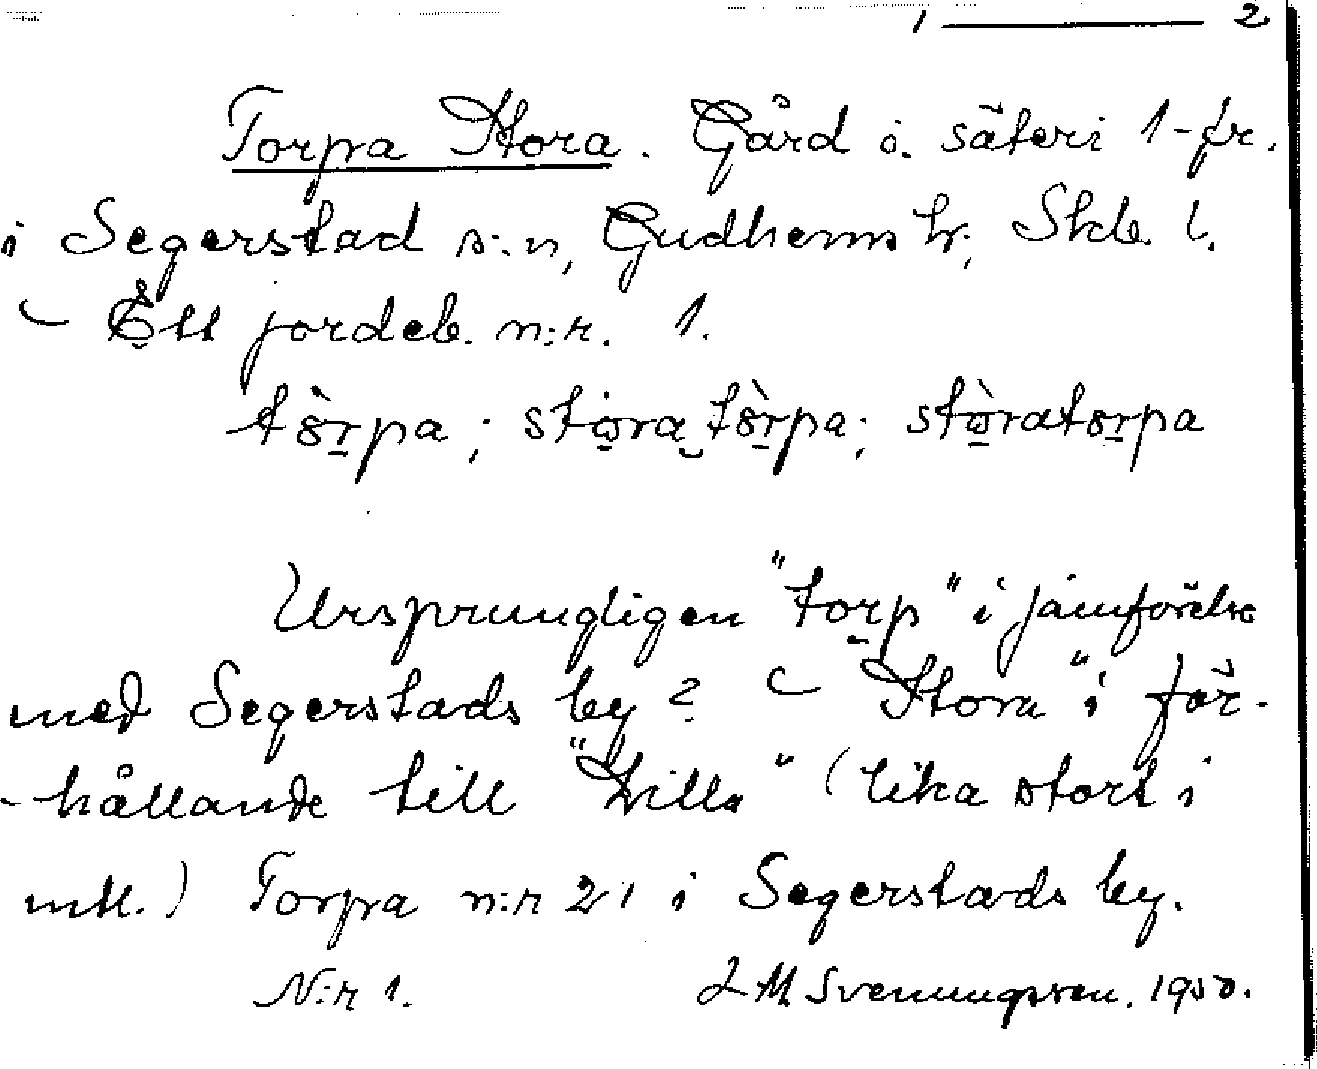 1 — 2
Torpa Stora. Gård o. säteri 1-fr.
i Segerstad s:n, Gudhems hr, Skb. l.
– Ett jordeb. n:r. 1.
tòrpa; stora tòrpa; stòratorpa
Ursprungligen "torp" i jämförelse
med Segerstads by? – "Stora" i för-
-hållande till "Lilla" (lika stort i
mtl.) Torpa n:r 21 i Segerstads by.
N:r 1. L M Svenungsson. 1950.